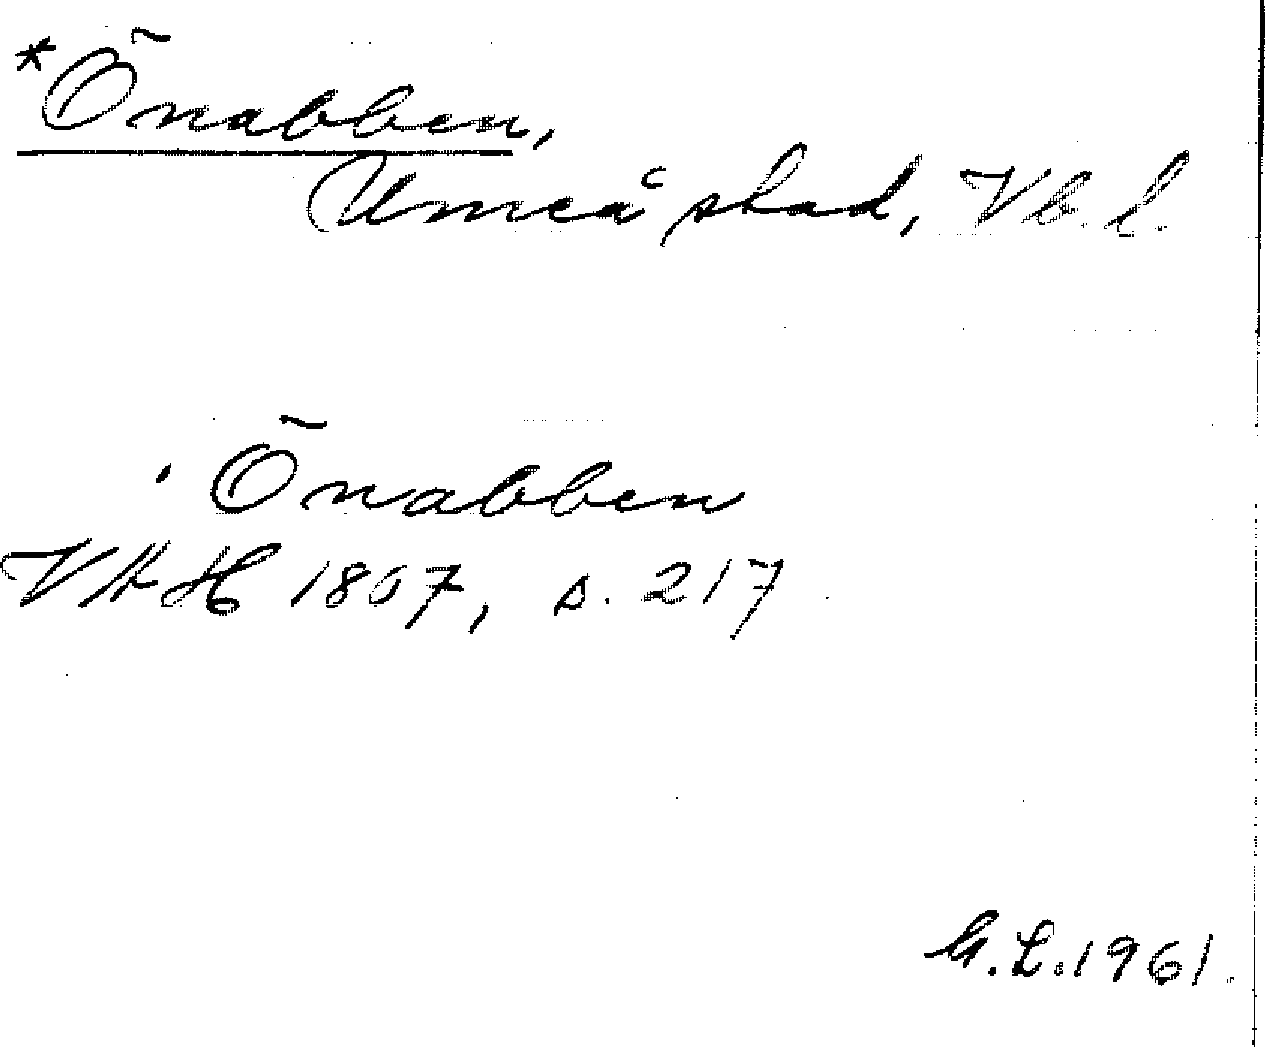 *Önabben,
Umeå stad, Vb. l.
Önabben
VHH 1807, s. 217
G.L. 1961.